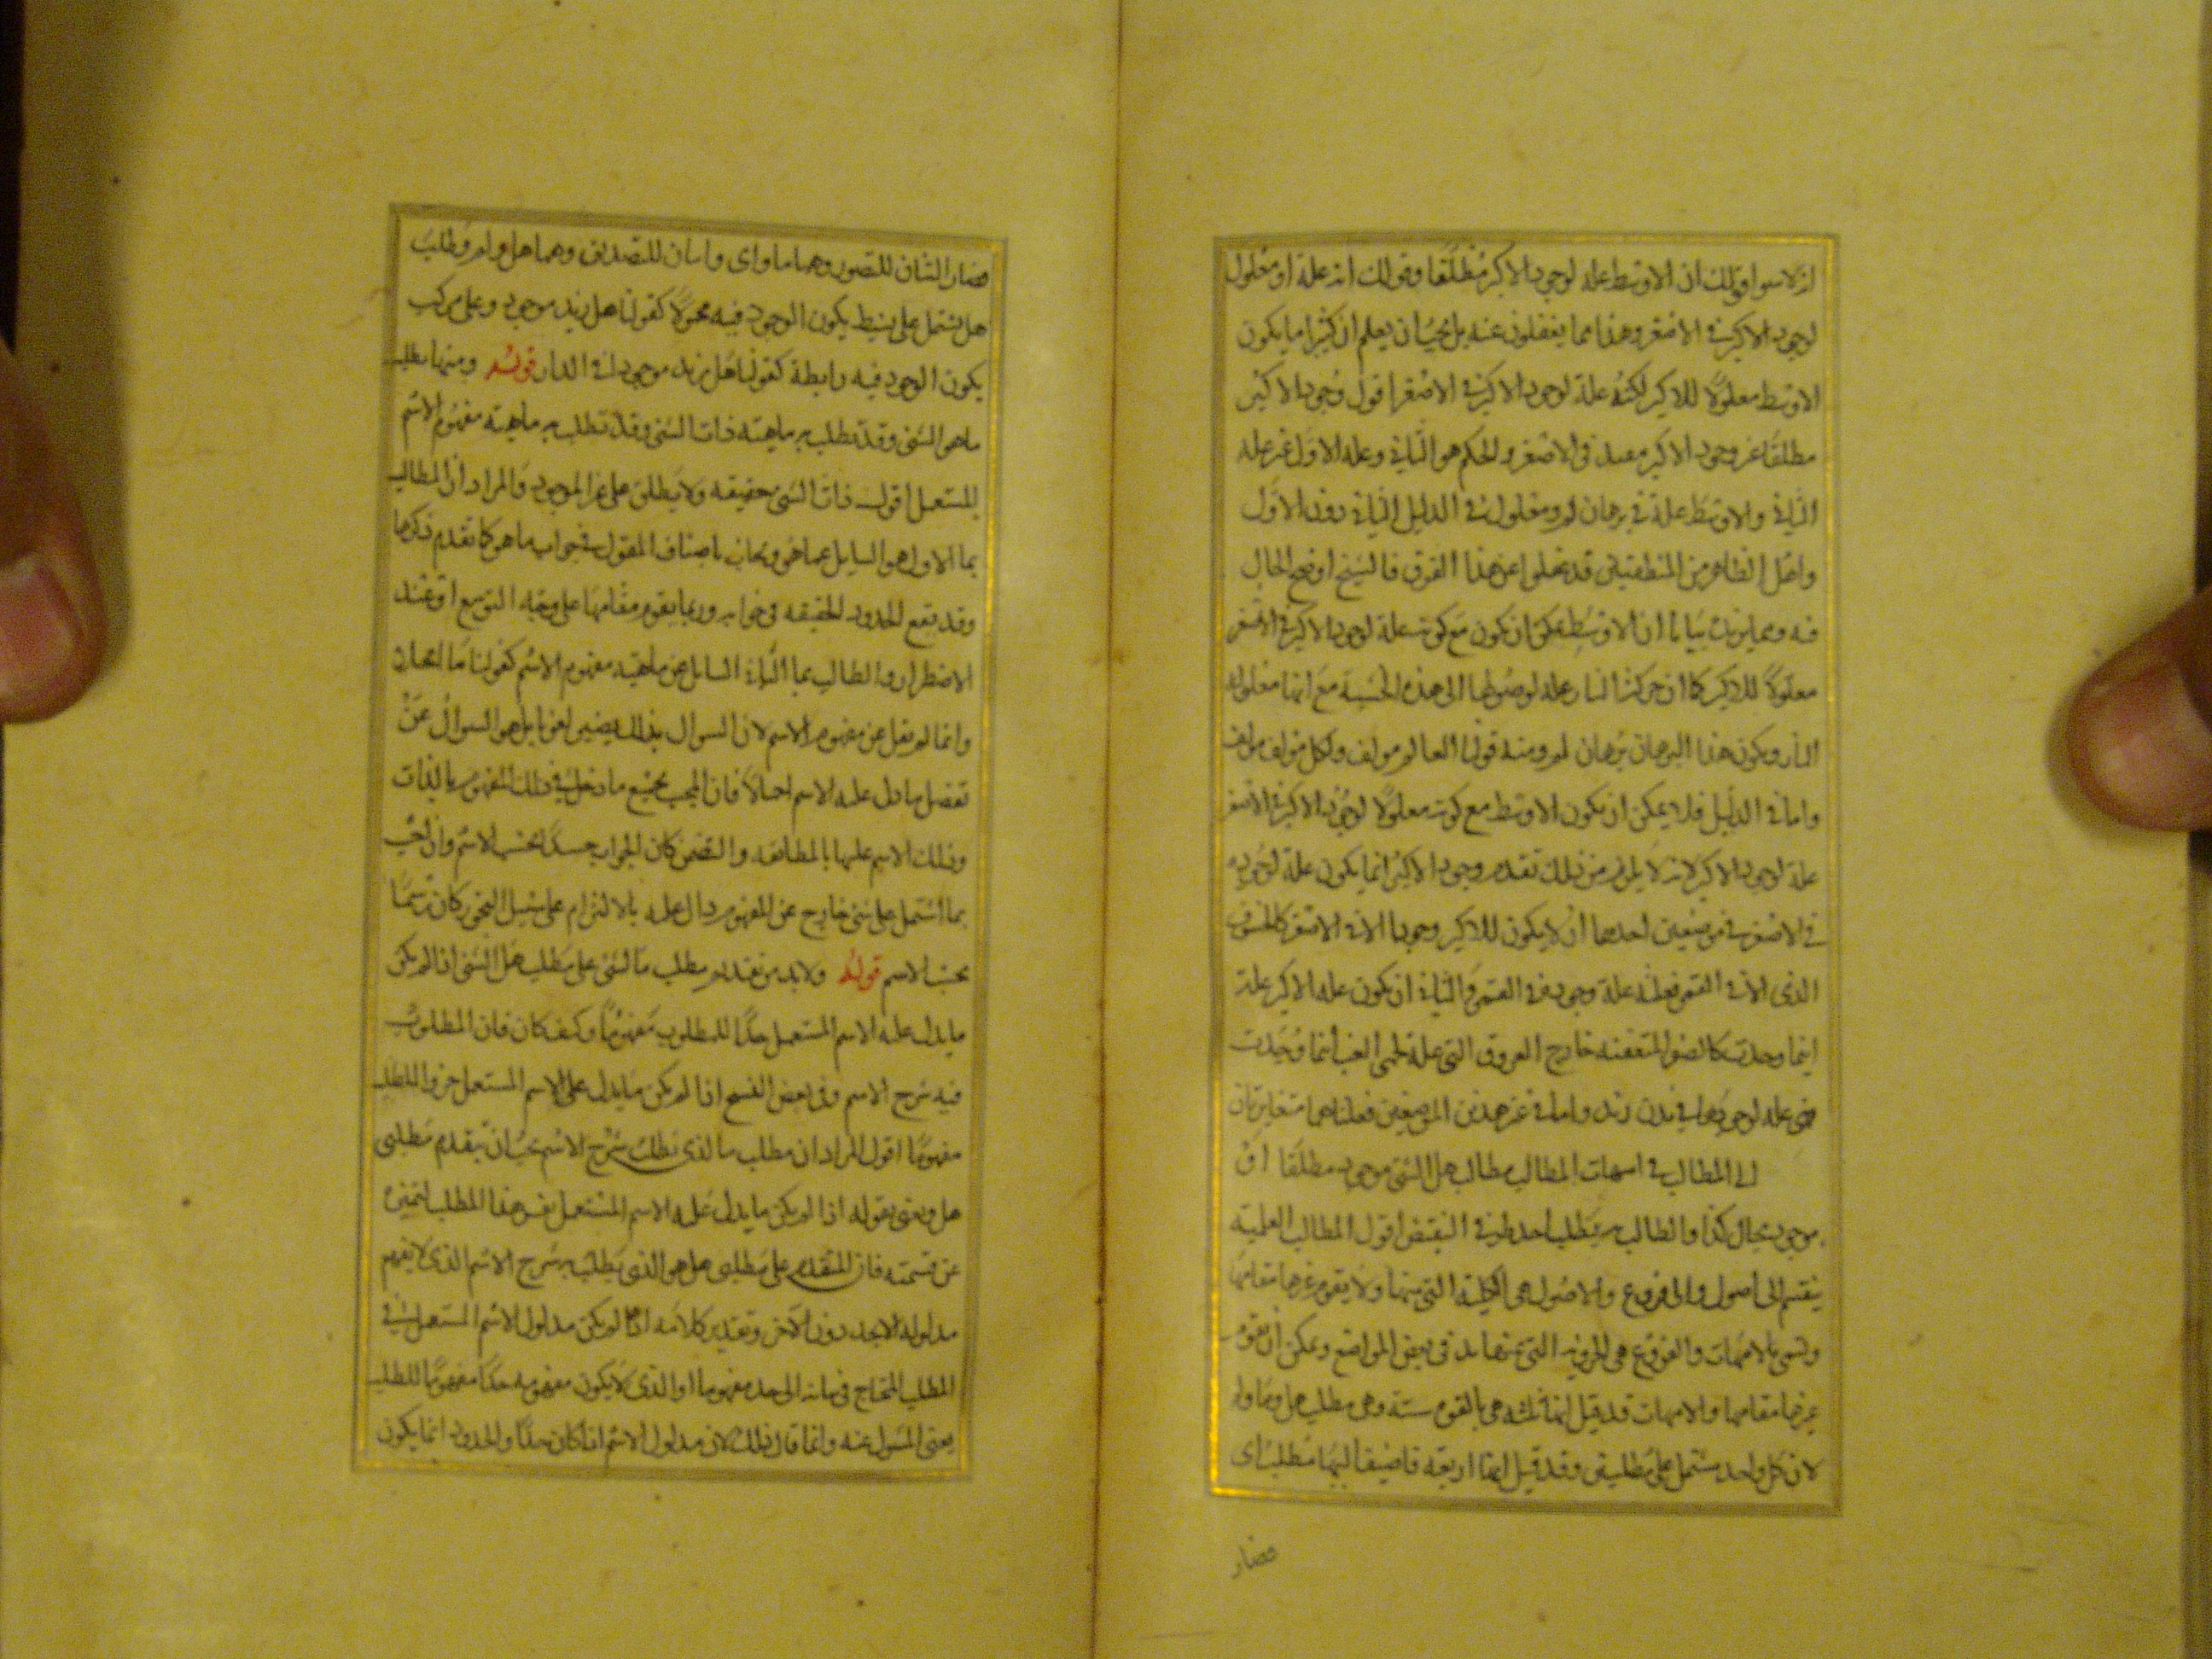 انه لا سوا قولك ان الاوسط علة لوجود الاكبر مطلقا وقولك انه علة او معلول
لوجود الاكبر في الاصغر وهذا مما يغفلون عنه بل يجب ان يعلم ان كثيرا ما يكون
الاوسط معلولا للاكبر لكنه علة لوجود الاكبر في الاصغر اقول وجود الاكبر
مطلقا غير وجود الاكبر في الاصغر والحكم هو الثاني وعلة الاول غير علة
الثاني والاوسط علة في برهان لم ومعلول في الدليل الثاني دون الاول
واهل الظاهر من المنطقيين قد غفلوا عن هذا الفرق فالشيخ اوضح الحال
فيه ومما يزيده بيانا ان الاوسط يمكن ان يكون مع كونه علة لوجود الاكبر في الاصغر
معلولا للاكبر كما ان حركة النار علة لوصولها الى هذه الخشبة مع انها معلولة
النار ويكون هذا البرهان برهان لم ومنه قولنا العالم مولف ولكل مولف مولف
واما في الدليل فلا يمكن ان يكون الاوسط مع كونه معلولا لوجود الاكبر في الاصغر
علة لوجود الاكبر لانه لا يلزم من ذلك تقدم وجود الاكبر انما يكون علة لوجوده
في الاصغر في موضعين احدهما ان لا يكون للاكبر وجود الا في الاصغر كالخسوف
الذي لا في القمر فعلته علة وجوده في القمر والثاني ان يكون علة الاكبر علة
اينما وجدت كالصفرا المتعفنة خارج العروق التي علة لحمى الغب اينما وجدت
فهي علة لوجودها في بدن زيد واما في غير هذين الموضعين فعلتاهما متغايرتان
الى المطالب في امهات المطالب مطالب هل الشي موجود مطلقا او
موجود بحال كذا والطالب به يطلب احد طرفي النقيض اقول المطالب العلمية
ينقسم الى اصول والى فروع والاصول هي الكلية التي منها ولا يقوم غيرها مقامها
وتسمى بالامهات والفروع هي الجزوية التي عنها بد في بعض المواضع ويمكن ان يقوم
غيرها مقامها والامهات قد قيل انها ثلثة هي بالقوه ستة وهي مطلب هل وما ولم
لان كل واحد مشتمل على مطلبين وقد قيل انها اربعة فاضيفا اليها مطلب اى
فصار
فصار اثنان للتصور وهما ما واى واثنان للتصديق وهما هل ولم ومطلب
هل يشتمل على بسيط يكون الوجود فيه محمولا كقولنا هل زيد موجود وعلى مركب
يكون الوجود فيه رابطة كقولنا هل زيد موجود في الدار قوله ومنها مطلب
ما هو الشي وقد يطلب به ماهية ذات الشي وقد تطلب به ماهية مفهوم الاسم
المستعمل اقول ذات الشي حقيقته ولا يطلق على غير الموجود والمراد ان المطالب
بما الاول هو السايل عما هو ويجاب باصناف المقول في جواب ما هو كما تقدم ذكرها
وقد تقع الحدود الحقيقه في جوابه وربما يقوم مقامها على وجه التوسع او عند
الاضطرار والطالب بما الثاني السايل عن ماهية مفهوم الاسم كقولنا ما الخلا
وانما لم يقل عن مفهوم الاسم لان السوال بذلك يصير لغويا بل هو السوال عن
تفصيل ما دل عليه الاسم اجمالا فان اجيب بجميع ما دخل في ذلك المفهوم بالذات
وذلك الاسم عليها بالمطابقه والتضمن كان الجواب حدا بحسب الاسم وان اجيب
بما اشتمل على شي خارج عن المفهوم دال عليه بالالتزام على سبيل التجوز كان رسما
بحسب الاسم قوله ولا بد من تقديم مطلب ما الشي على مطلب هل الشي اذا لم يكن
ما يدل عليه الاسم المستعمل حدا للمطلوب مفهوما وكيف كان فان المطلوب
فيه شرح الاسم وفي بعض النسخ اذا لم يكن ما يدل على الاسم المستعمل جزوا للمطلب
مفهوما اقول المراد ان مطلب ما الذي يطلب شرح الاسم يجب ان يتقدم مطلبي
هل ويعني بقوله اذا لم يكن ما يدل عليه الاسم المستعمل نفس هذا المطلب لتميزه
عن قسيمه فان المتقدم على مطلبي هل هو الذي يطلب به شرح الاسم الذي لا يفهم
مدلوله الا بحد دون الآخر وتقدير كلامه اذا لم يكن مدلول الاسم المستعمل في
المطلب المحتاج في بيانه الى حد مفهوما او الذي لا يكون مفهومه حدا مفهوما للمطلب
يعني المسول عنه وانما قال ذلك لان مدلول الاسم اذا كان حدا والحدود انما يكون